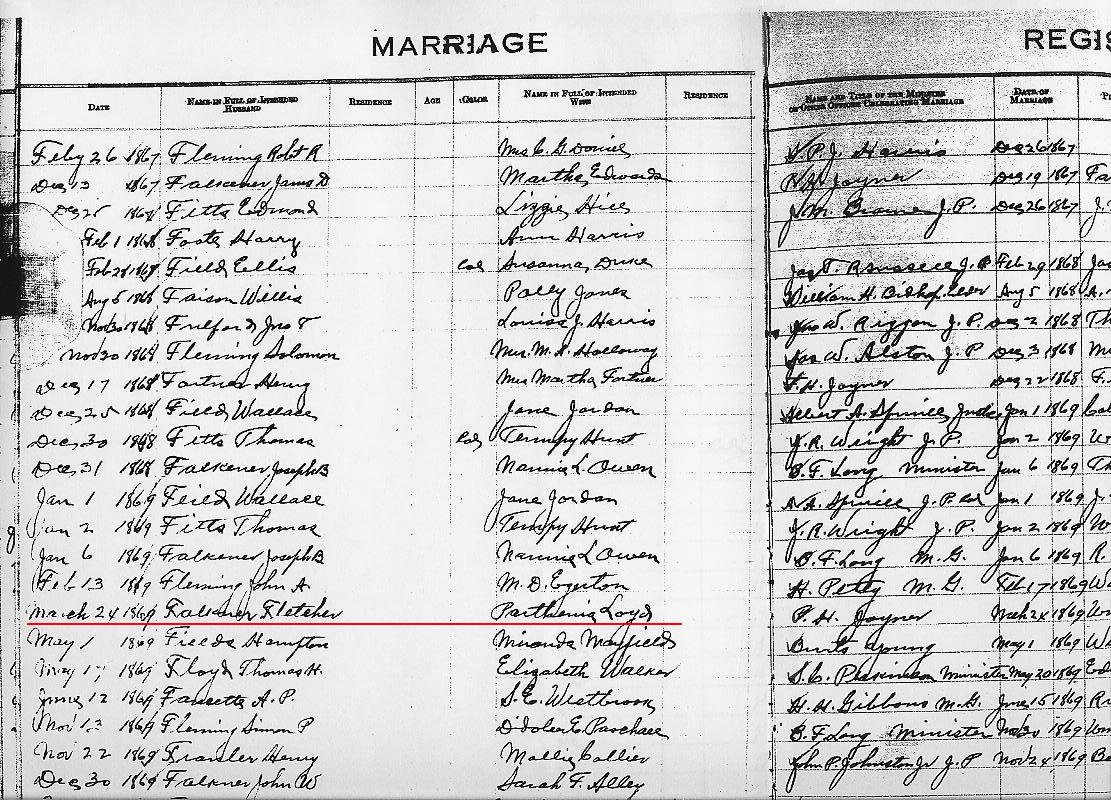 MARRIAGE REGIS
DATE NAME IN FULL OF INTENDED HUSBAND RESIDENCE AGE COLOR NAME IN FULL OF INTENDED WIFE RESIDENCE NAME AND TITLE OF THE MINISTER OR OTHER OFFICER CELEBRATING MARRIAGE DATE OF MARRIAGE
Feby 26 1867 Fleming Robt R Mrs C. G. Daniel Harris Dec 26 1867
Dec 13 1867 Falkener James D Martha Edwards Joyner Dec 19 1867 Fa
Dec 25 1868 Fitts Edmond Lizzie J. M. J. P. Dec 26 1867 J.
Feb 1 1868 Foote Harry Ann Harris
Feb 28 1868 Field Ellis Col Susanna Duke Jas T. Russell J. P Feb 29 1868 Jas
Aug 5 1868 Faison Willis Polly Jones William H. Bishop Elder Aug 5 1868 A.
Nov 30 1868 Fulford Jno T Louisa J. Harris Jno W. Riggan J. P. Dec 2 1868 Th
Nov 30 1868 Fleming Solomon Mrs. M. A. Holloway Jas W. Alston J. P Dec 3 1868
Dec 17 1868 Fortner Henry Mrs Martha Fortner F. H. Joyner Dec 22 1868 F.
Dec 25 1868 Field Wallace Jane Jordan Albert A. Spruill Jan 1 1869
Dec 30 1868 Fitts Thomas Col Tempy Hunt J. R. Wright J. P. Jan 2 1869
Dec 31 1868 Falkener Joseph B Nannie L Owen B. F. Long Minister Jan 6 1869 Th
Jan 1 1869 Feild Wallace Jane Jordan A. A. Spruill J. P. Jan 1 1869 J.
Jan 2 1869 Fitts Thomas Tempy Hunt J. R. Wright J. P. Jan 2 1869 W
Jan 6 1869 Falkener Joseph B Nannie L Owen B. F. Long M. G. Jan 6 1869 R.
Feb 13 1869 Fleming John A. M. D. Egerton H. Petty M. G. Feb 17 1869 Wa
March 24 1869 Falkner Fletcher Parthenia Loyd P. H. Joyner March 24 1869
May 1 1869 Fields Hampton Miranda Mayfield Burts Young May 1 1869 Wa
May 17 1869 Floyd Thomas H. Elizabeth Walker Minister May 20 1869
June 12 1869 Faucette A. P. S. E. Westbrook H. H. Gibbons M. G. June 15 1869
Nov 13 1869 Fleming Simon P Paschall B. F. Long Minister Nov 30 1869
Nov 22 1869 Henry Mollie Collier John P. Johnston Jr J. P Nov 24 1869
Dec 30 1869 Falkner John W Sarah F. Alley